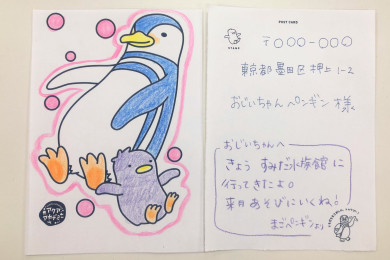 POST CARD
〒000-000
STAMP
東京都墨田区押上1-2
おじいちゃんペンギン様
おじいちゃんへ
きょう すみだ水族館に
行ってきたよ。
来月あそびにいくね!
まごペンギンより